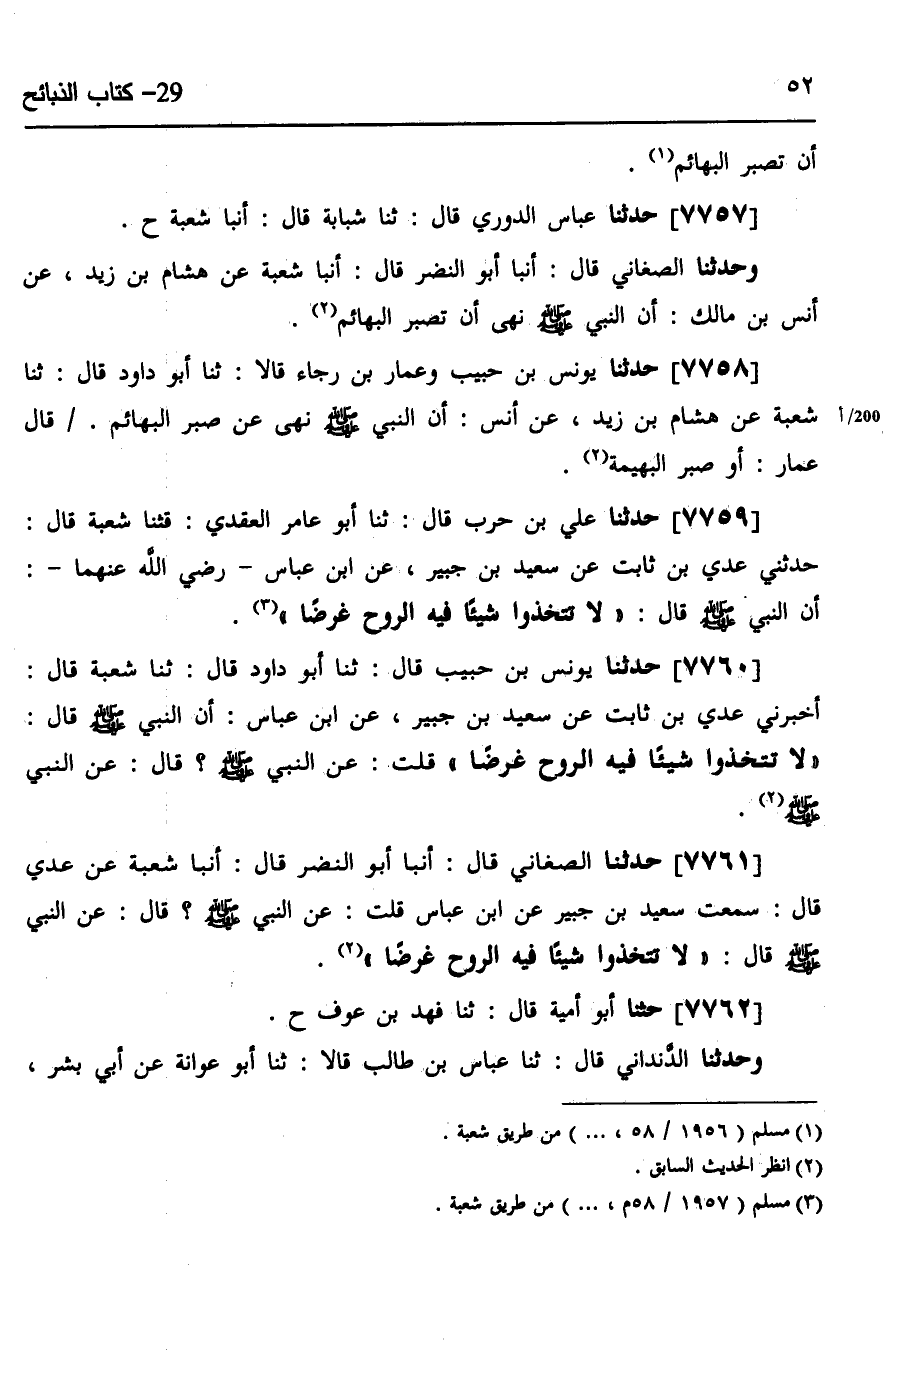 ٥٢
29- كتاب الذبائح
أن تصبر البهائم(١) .
[٧٧٥٧] حدثنا عباس الدوري قال : ثنا شبابة قال : أنبا شعبة ح .
وحدثنا الصغاني قال : أنبا أبو النضر قال : أنبا شعبة عن هشام بن زيد ، عن
أنس بن مالك : أن النبي ﷺ نهى أن تصبر البهائم(٢) .
[٧٧٥٨] حدثنا يونس بن حبيب وعمار بن رجاء قالا : ثنا أبو داود قال : ثنا
شعبة عن هشام بن زيد ، عن أنس : أن النبي ﷺ نهى عن صبر البهائم . / قال
200/أ
عمار : أو صبر البهيمة(٢) .
[٧٧٥٩] حدثنا علي بن حرب قال : ثنا أبو عامر العقدي : قثنا شعبة قال :
حدثني عدي بن ثابت عن سعيد بن جبير ، عن ابن عباس – رضي اللَّه عنهما – :
أن النبي ﷺ قال : « لا تتخذوا شيئًا فيه الروح غرضًا »(٣) .
[٧٧٦٠] حدثنا يونس بن حبيب قال : ثنا أبو داود قال : ثنا شعبة قال :
أخبرني عدي بن ثابت عن سعيد بن جبير ، عن ابن عباس : أن النبي ﷺ قال :
«لا تتخذوا شيئًا فيه الروح غرضًا » قلت : عن النبي ﷺ ؟ قال : عن النبي
ﷺ(٢) .
[٧٧٦١] حدثنا الصغاني قال : أنبا أبو النضر قال : أنبا شعبة عن عدي
قال : سمعت سعيد بن جبير عن ابن عباس قلت : عن النبي ﷺ ؟ قال : عن النبي
ﷺ قال : « لا تتخذوا شيئًا فيه الروح غرضًا »(٢) .
[٧٧٦٢] حثنا أبو أمية قال : ثنا فهد بن عوف ح .
وحدثنا الدَّنداني قال : ثنا عباس بن طالب قالا : ثنا أبو عوانة عن أبي بشر ،
(١) مسلم ( ١٩٥٦ / ٥٨ ، ... ) من طريق شعبة .
(٢) انظر الحديث السابق .
(٣) مسلم ( ١٩٥٧ / ٥٨م ، ... ) من طريق شعبة .